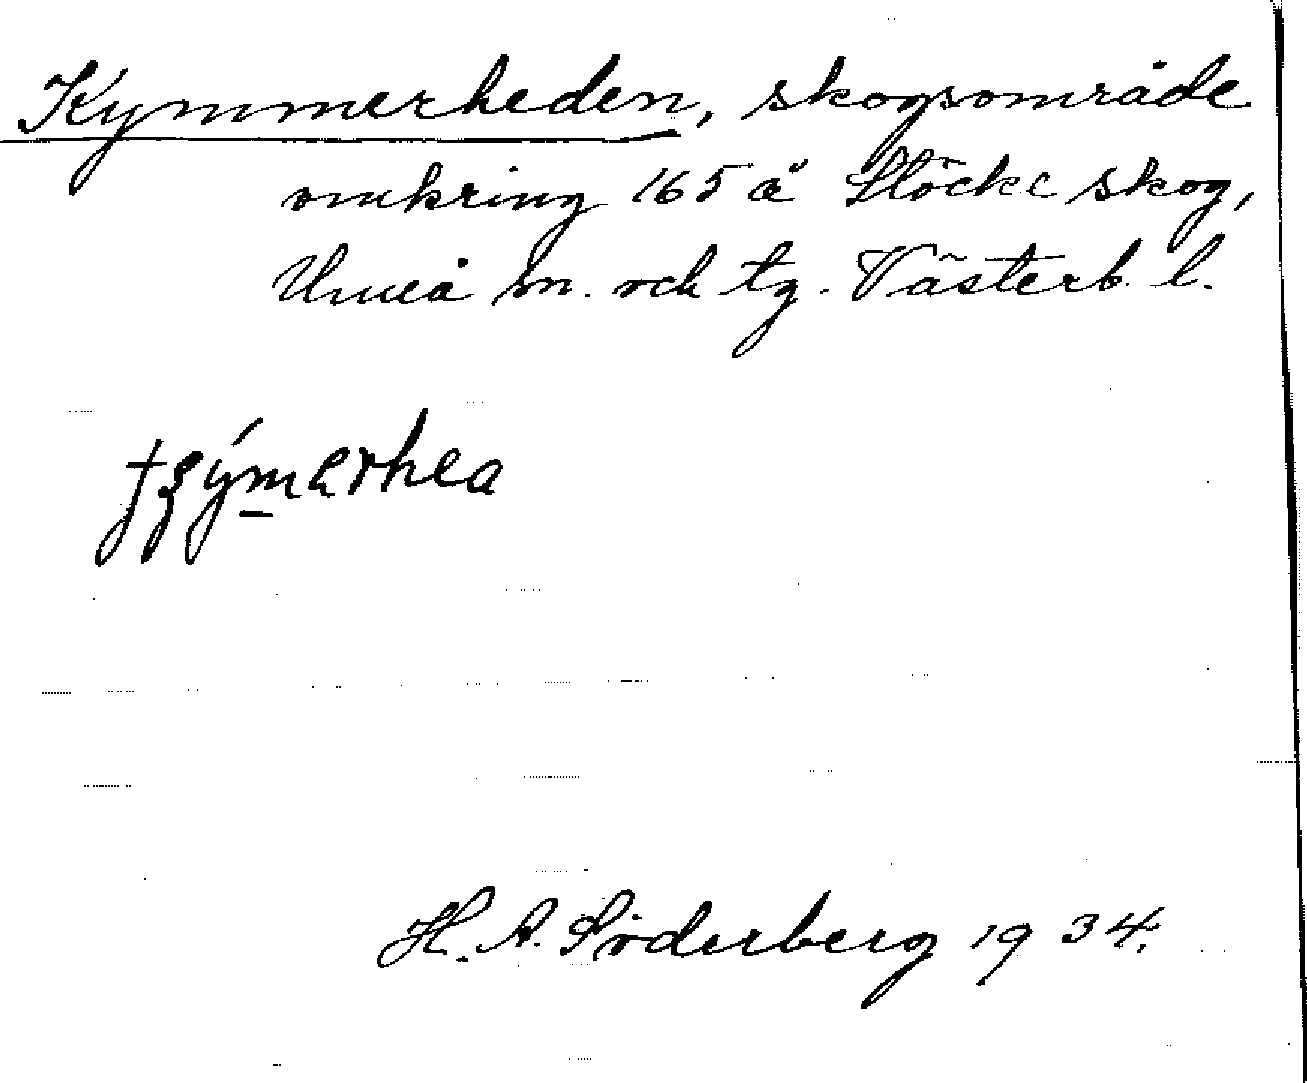 Kymmerheden, skogsområde
omkring 165 å Stöcke skog,
Umeå sn. och tg. Västerb. l.
H. A. Söderberg 1934.